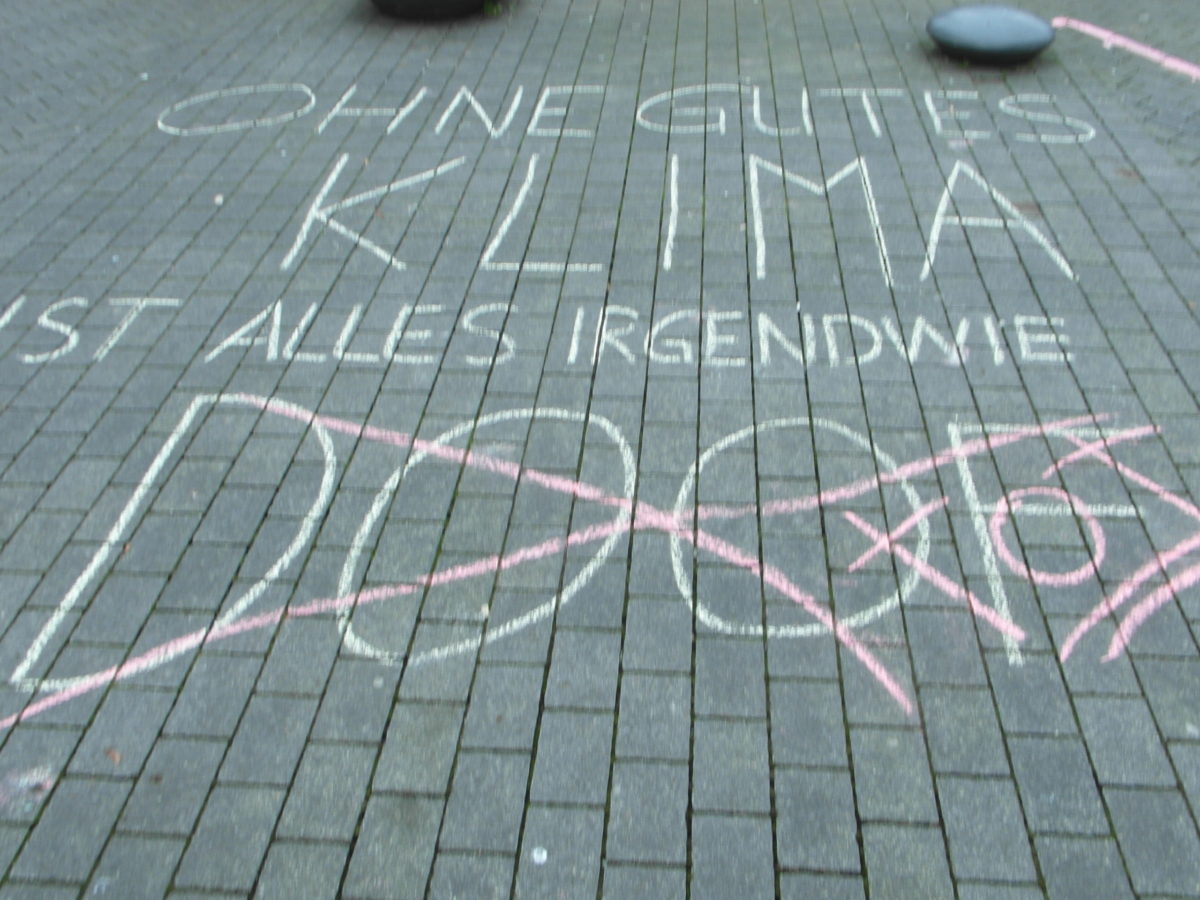 OHNE GUTES
KLIMA
IST ALLES IRGENDWIE
DOOF